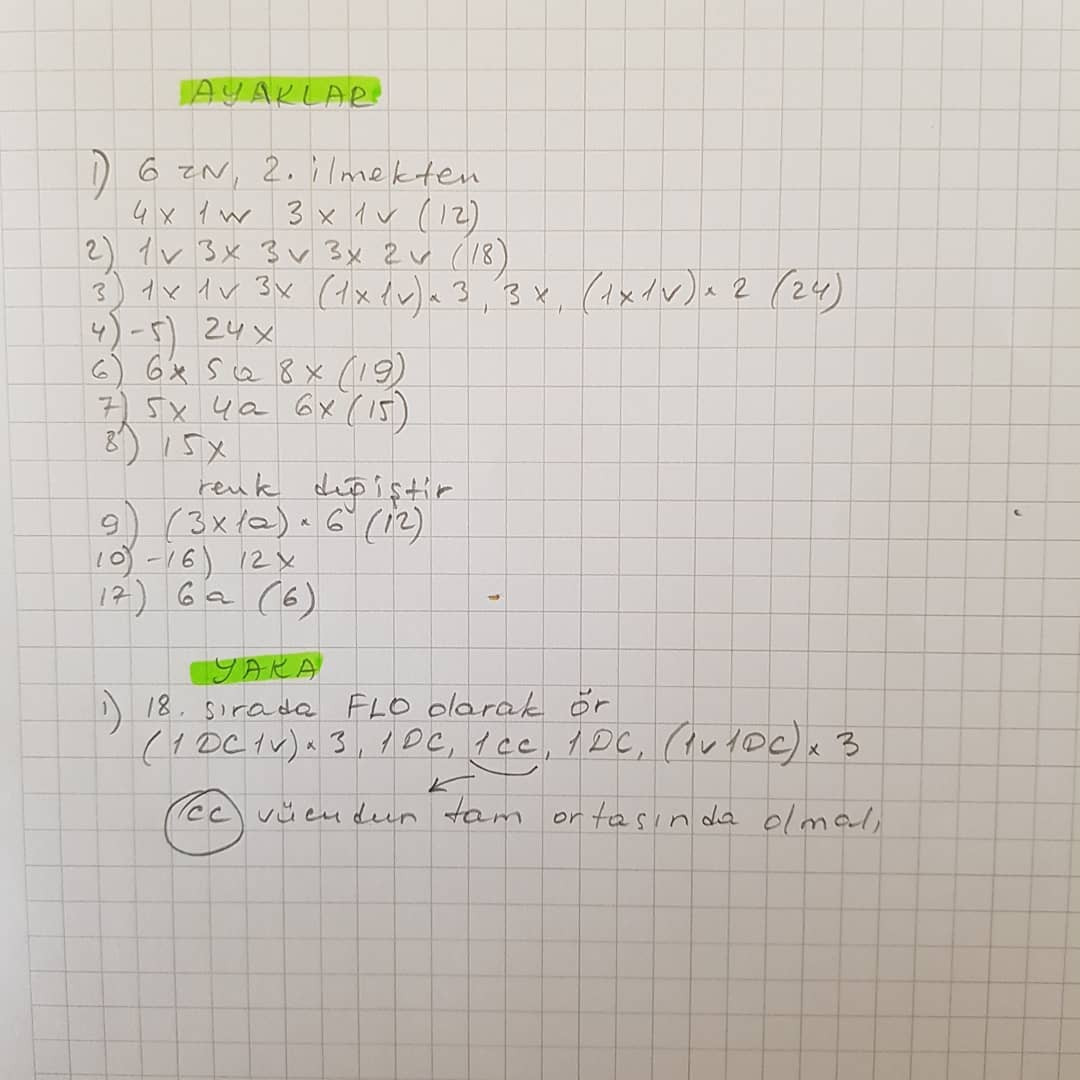 AYAKLAR
1) 6 ZN, 2. ilmekten
4x 1w 3x 1v (12)
2) 1v 3x 3v 3x 2v (18)
3) 1x 1v 3x (1x1v)*3, 3x, (1x1v)*2 (24)
4)-5) 24x
6) 6x 5a 8x (19)
7) 5x 4a 6x (15)
8) 15x
renk değiştir
9) (3x1a)*6 (12)
10)-16) 12x
17) 6a (6)
YAKA
1) 18. sırada FLO olarak ör
(1DC1v)*3, 1DC, 1cc, 1DC, (1v1DC)*3
cc vücudun tam ortasında olmalı